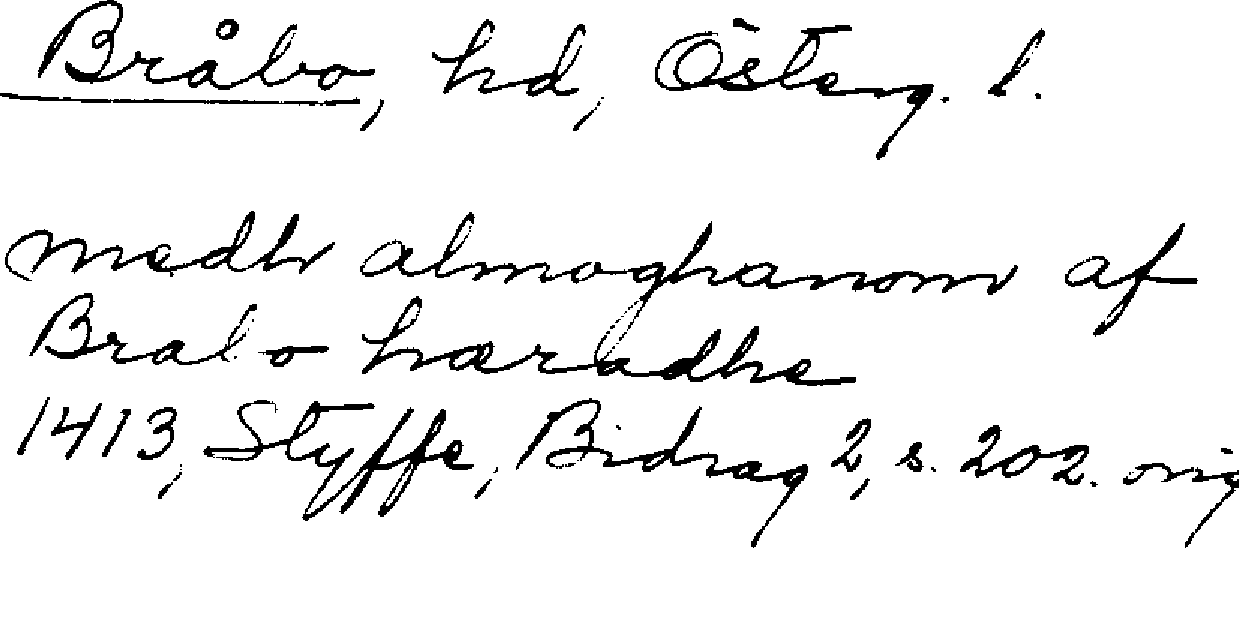 Bråbo, hd, Österg. l.
medh almoghanom af
Brabo hæradhe
1413, Styffe, Bidrag 2, s. 202. orig